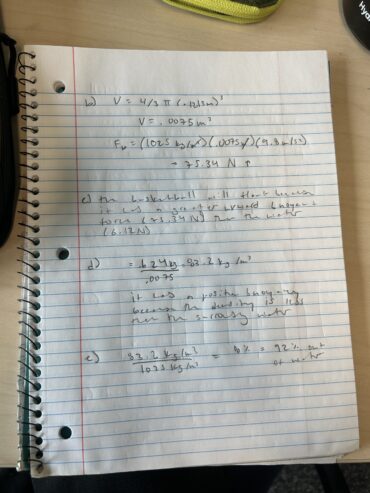 Hyd
b) V = 4/3 π (.1213m)³
V = .0075 m³
F_b = (1025 kg/m³)(.0075 m³)(9.8 m/s²)
= 75.34 N ↑
c) the basketball will float because
it has a greater upward buoyant
force (75.34N) than the water
(6.12N)
d) = .624kg = 83.2 kg/m³
.0075
it has a positive buoyancy
because the density is less
than the surrounding water
e) 83.2 kg/m³ = 8% = 92% out
1025 kg/m³ of water